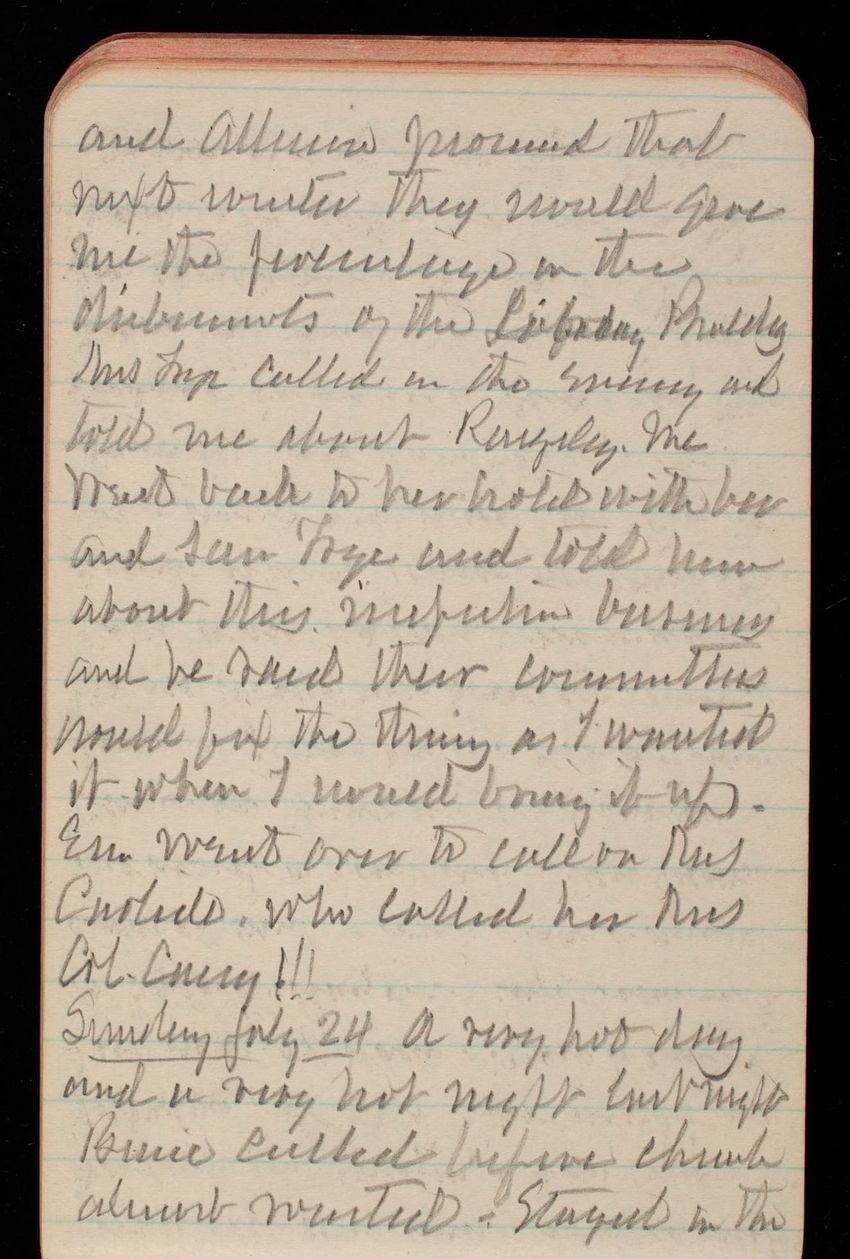 and Allison promised that
next winter they would give
me the percentage in the
disbursments of the Library Buildg
Mrs Frye called in the evening and
told me about Rangeley. We
went back to her hotel with her
and saw Frye and told him
about this inspection business
and he said their committee
would fix the thing as I wanted
it when I would bring it up.
Em went over to call on Mrs
who called her Mrs
Col. Casey!!!
Sunday July 24 A very hot day
and a very hot night last night
called before church
almost wasted - Stayed in the